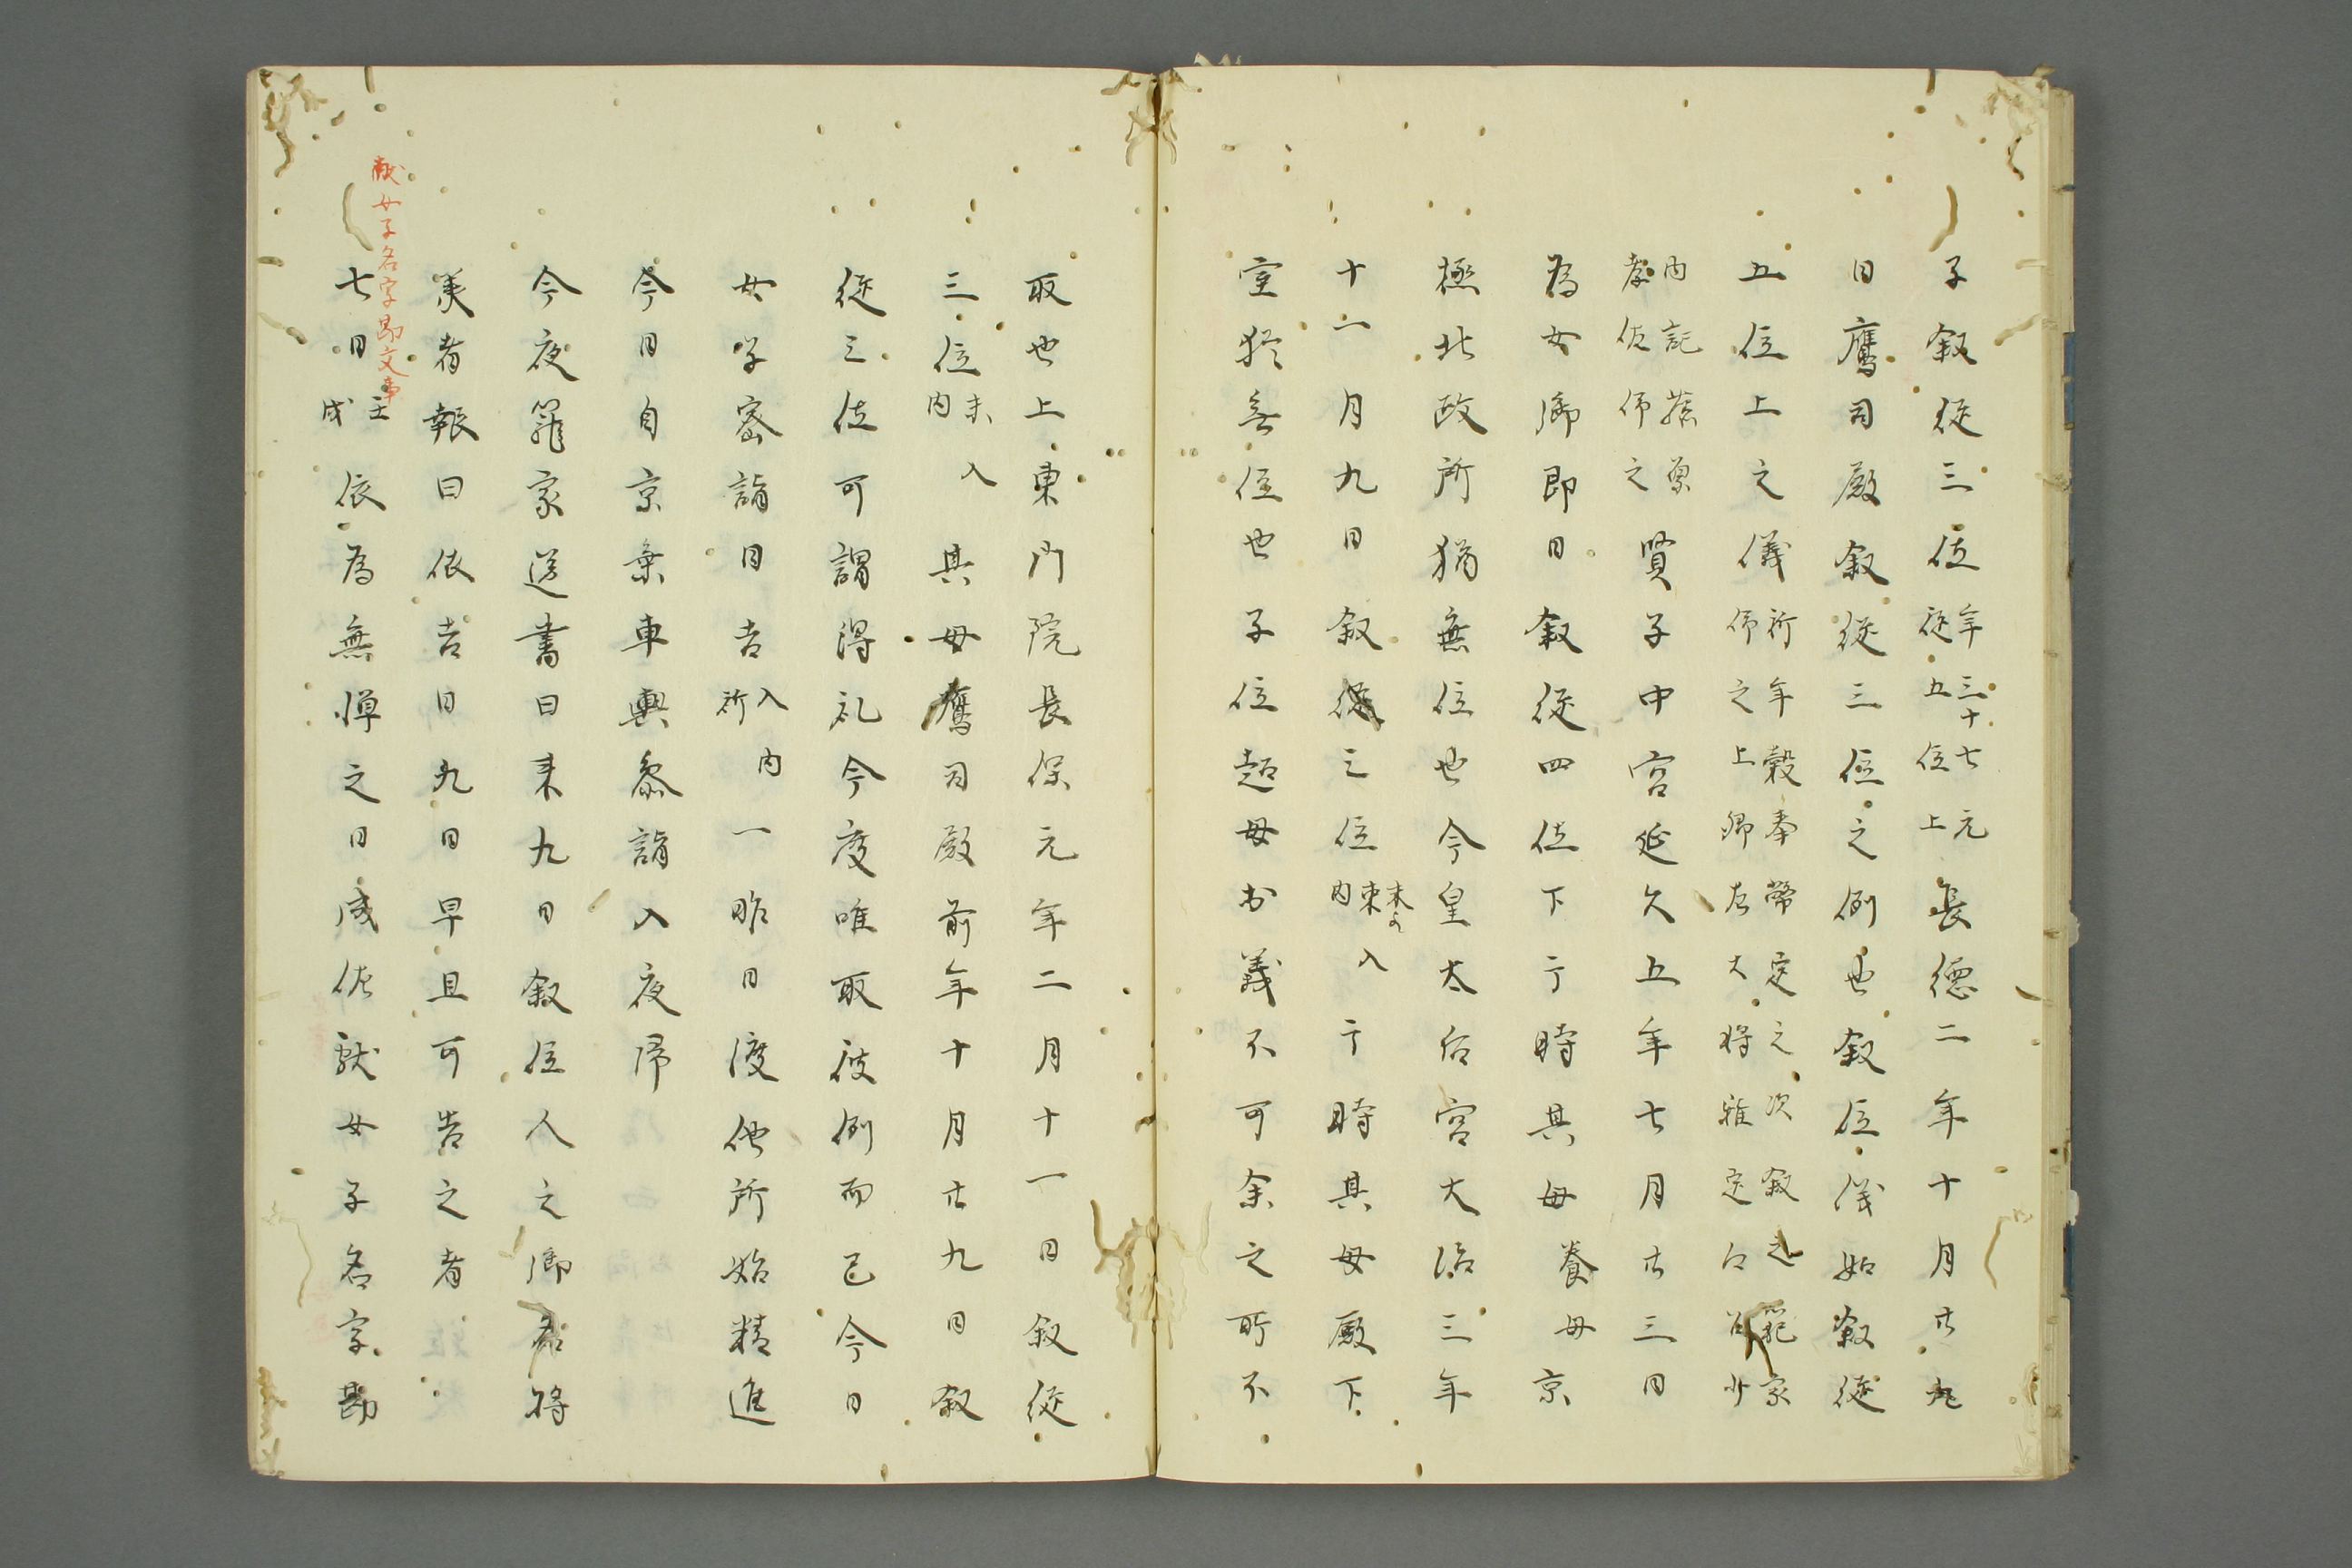 子叙従三位年三十七元従五位上長徳二年十月廿九
日鷹司殿叙従三位之例也叙位儀如叙従
五位上之儀祈年穀奉幣定之次叙之籠家作之上卿左大将雅定仰召少
内記蔡原孝佐作之賢子中宮延久五年七月廿三日
為女御即日叙従四位下于時其母養母京
極北政所猶無位也今皇太后宮大治三年
十一月九日叙従三位未入内于時其母殿下
室猶無位也子位超母於義不可余之所不
取也上東門院長保元年二月十一日叙従
三位未入内其母鷹司殿前年十月廿九日叙
従三位可謂得礼今度唯取彼例而已今日
女学密詣日吉入内祈一昨日渡他所始精進
今日自京乗車輿参詣入夜帰
今夜籠家送書曰来九日叙位人之御名将
美者報曰依吉日九日早旦可告之者
献女子名字勘文事
七日壬戌依為無憚之日成佐献女子名字勘